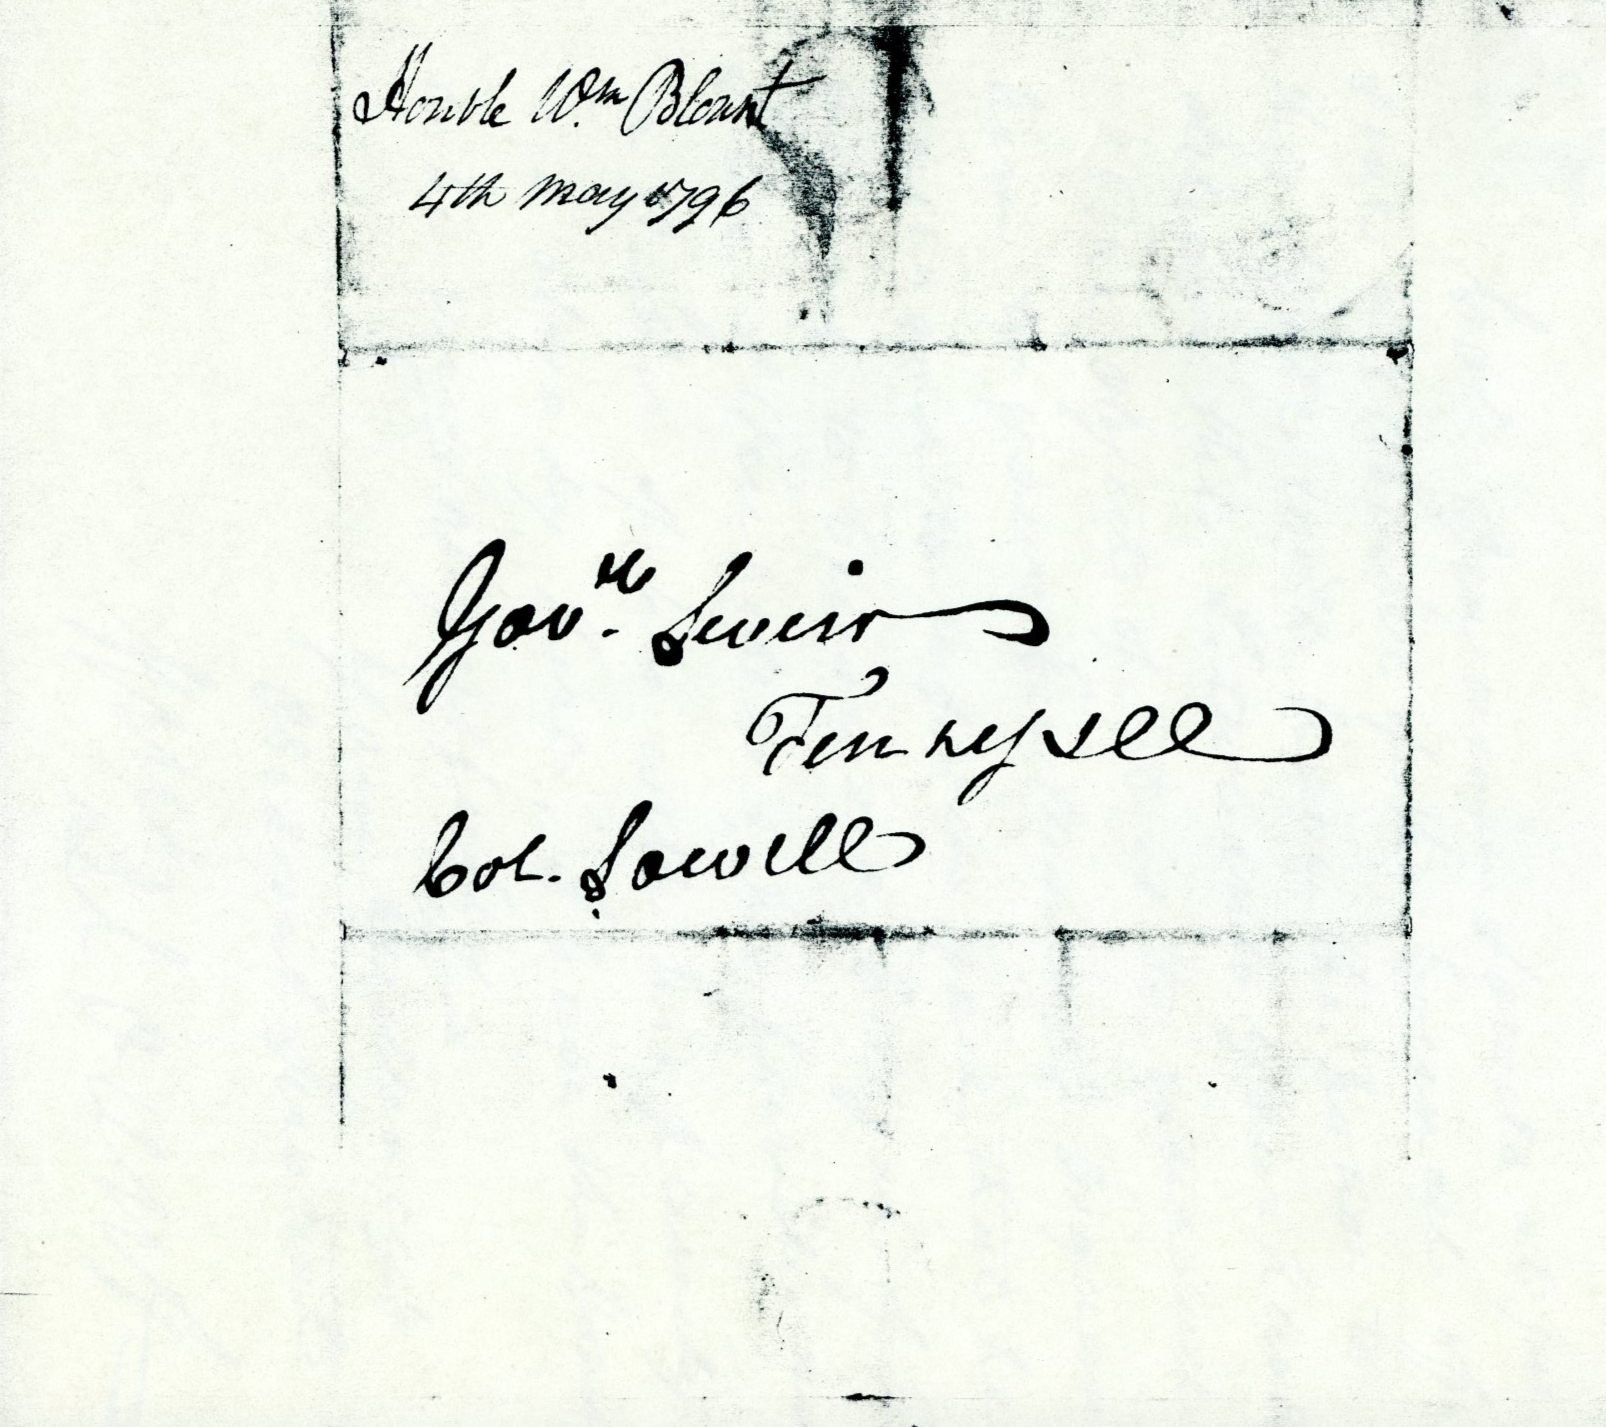 Honble Wm. Blount
4th May 1796
Govr. Sevier
Tennessee
Col. Sowell